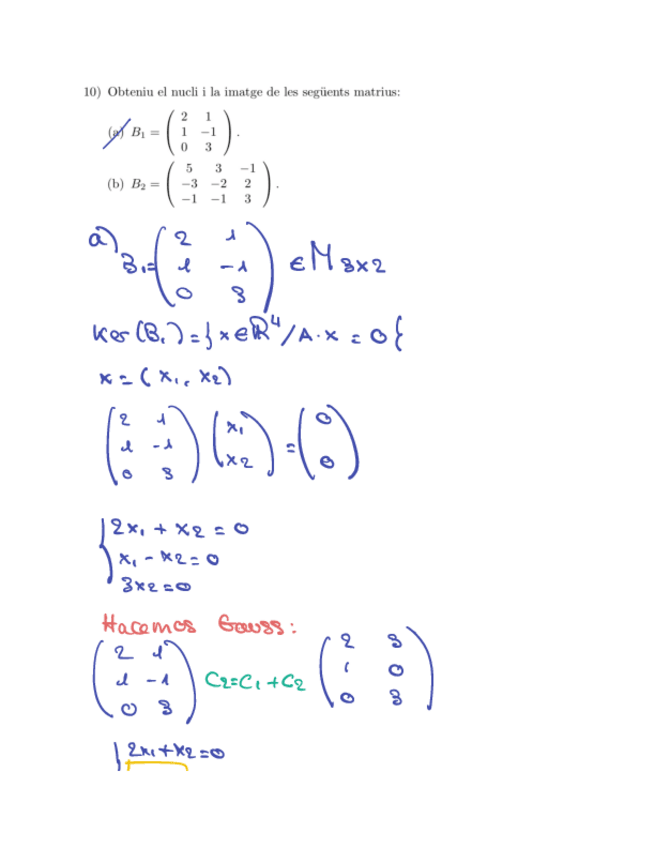 10) Obteniu el nucli i la imatge de les següents matrius:
(a) B₁ = ( 2 1
1 −1
0 3 ) .
(b) B₂ = ( 5 3 −1
−3 −2 2
−1 −1 3 ) .
a) B₁ = ( 2 1
1 -1
0 3 ) ∈ M 3x2
Ker (B₁) = } x ∈ ℝ⁴ / A · x = 0 {
x = ( x₁, x₂)
( 2 1
1 -1
0 3 ) ( x₁
x2 ) = ( 0
0 )
{ 2x₁ + x2 = 0
x₁ - x2 = 0
3x2 = 0
Hacemos Gauss:
( 2 1
1 -1
0 3 ) C2=C1+C2 ( 2 3
1 0
0 3 )
{ 2x₁+x2 = 0